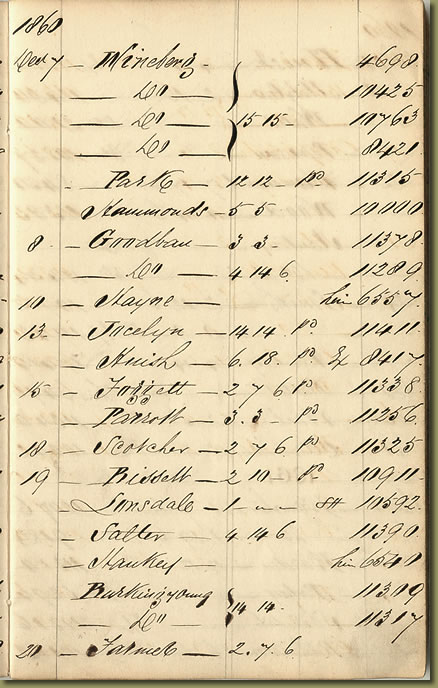 1860
Decr 7 — Wineberg — 4698
— Do — 10425
— Do — 15 15 - 10763
— Do 8421
- Park — 12 12 - pd 11315
Hammonds - 5 5 10000
8 - Goodban — 3 3 - 11378
— Do — 4 14 6 11289
10 - Hayne — him 6557
13 - Jocelyn — 14 14 pd 11411
- Huish — 6. 18. pd Ex 8417
15 - Forrett — 2 7 6 pd 11338
- Parrott — 3. 3 - pd 11256
18 - Scotcher — 2 7 6 pd 11325
19 - Bissett — 2 10 - pd 10911
- Lonsdale — 1 - - SH 10592
- Salter — 4 14 6 11390
- Hankey — him 6540
Burkinyoung 11309
— Do — 14 14. 11317
20 - Farmer — 2. 7. 6